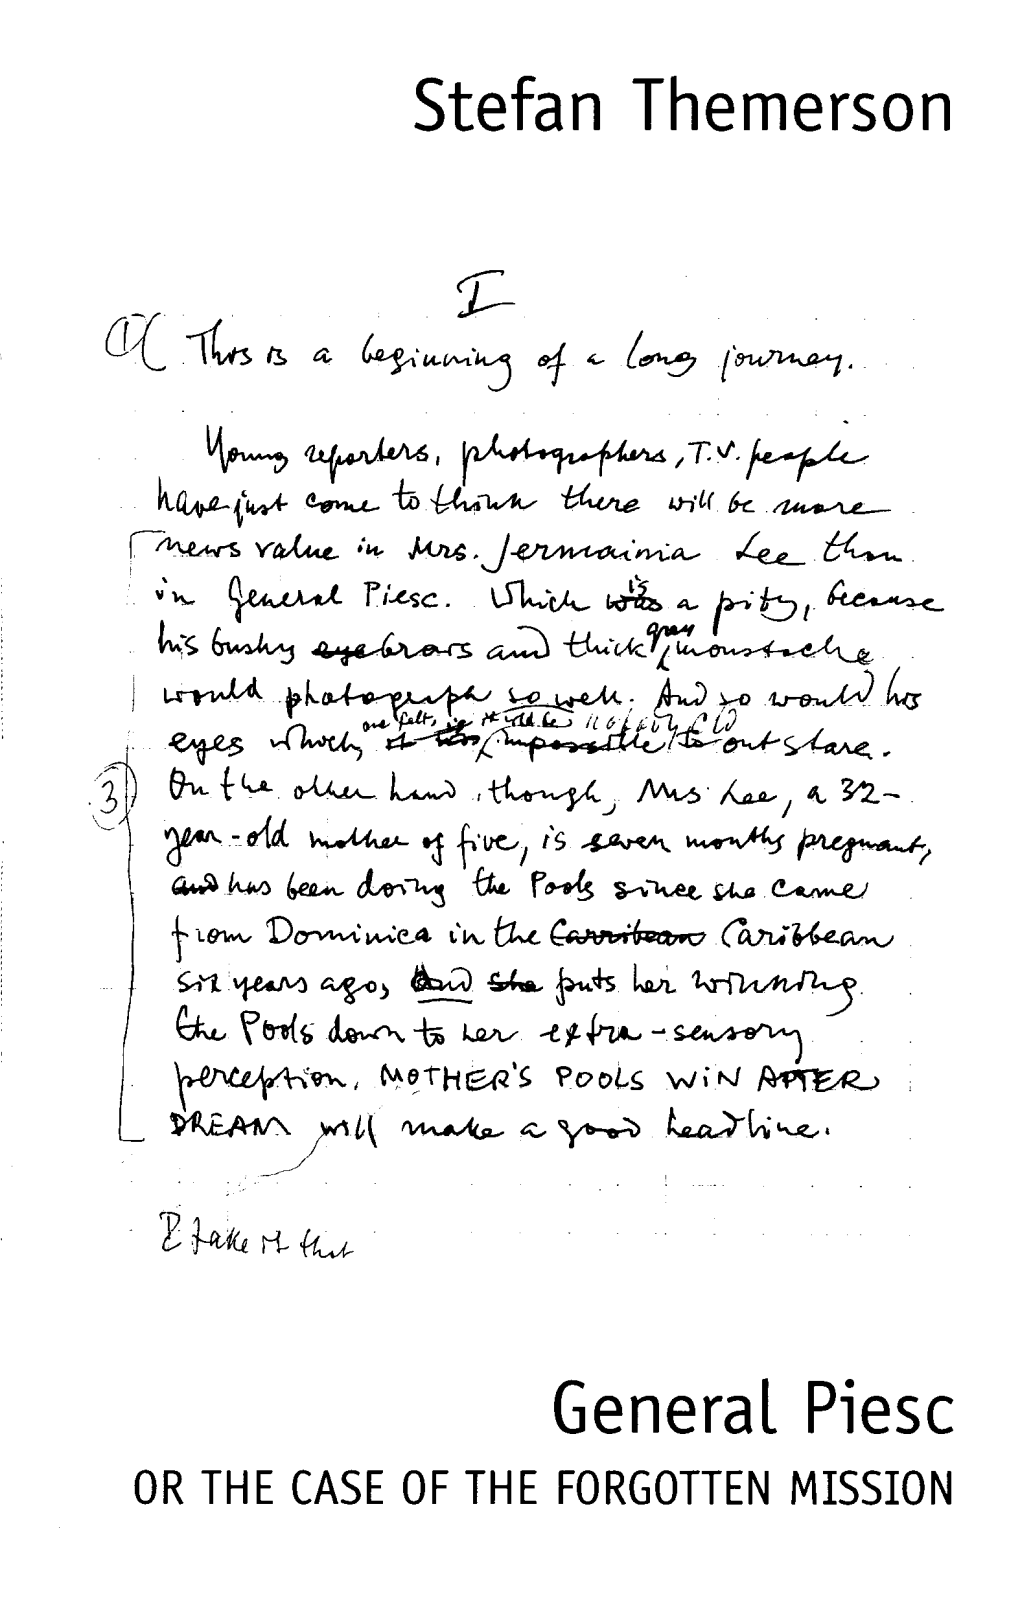 Stefan Themerson
I
1 This is a beginning of a long journey.
Young reporters, photographers, T.V. people
have just come to think there will be more
news value in Mrs. Jermainia Lee than
in General Piesc. Which was is a pity, because
his bushy eyebrows and thick grey moustache
would photograph so well. And so would his
one felt, it would be nobody cld
eyes which, it was impossible to outstare.
On the other hand, though, Mrs Lee, a 32-
3
year-old mother of five, is seven months pregnant,
and has been doing the Pools since she came
from Dominica in the Carribean Caribbean
six years ago, And she puts her winning
the Pools down to her extra-sensory
perception. MOTHER'S POOLS WIN AFTER
DREAM will make a good headline.
I take it that
General Piesc
OR THE CASE OF THE FORGOTTEN MISSION